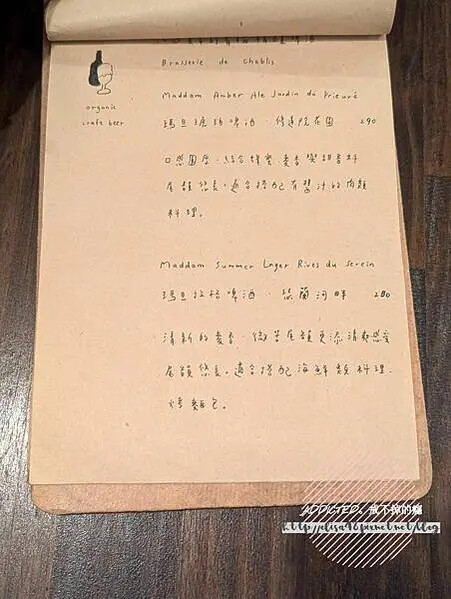 Brasserie de Chablis
organic
craft beer
Maddam Amber Ale Jardin du Prieuré
瑪旦琥珀啤酒．修道院花園 290
口感圓厚．結合蜂蜜麥香與甜香料
尾韻悠長．適合搭配有醬汁的肉類
料理。
Maddam Summer Lager Rives du Serein
瑪旦拉格啤酒．瑟蘭河畔 280
清新的麥香．微苦尾韻更添清爽感受
尾韻悠長。適合搭配海鮮類料理．
烤麵包。
ADDICTED. 戒不掉的癮
http://elisa98.pixnet.net/blog